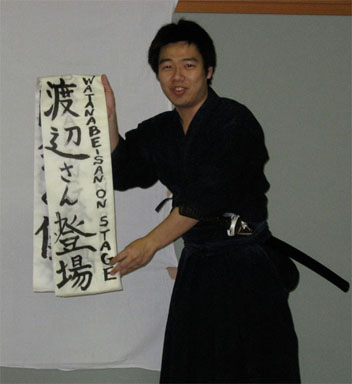 渡辺さん登場
WATANABE-SAN ON STAGE